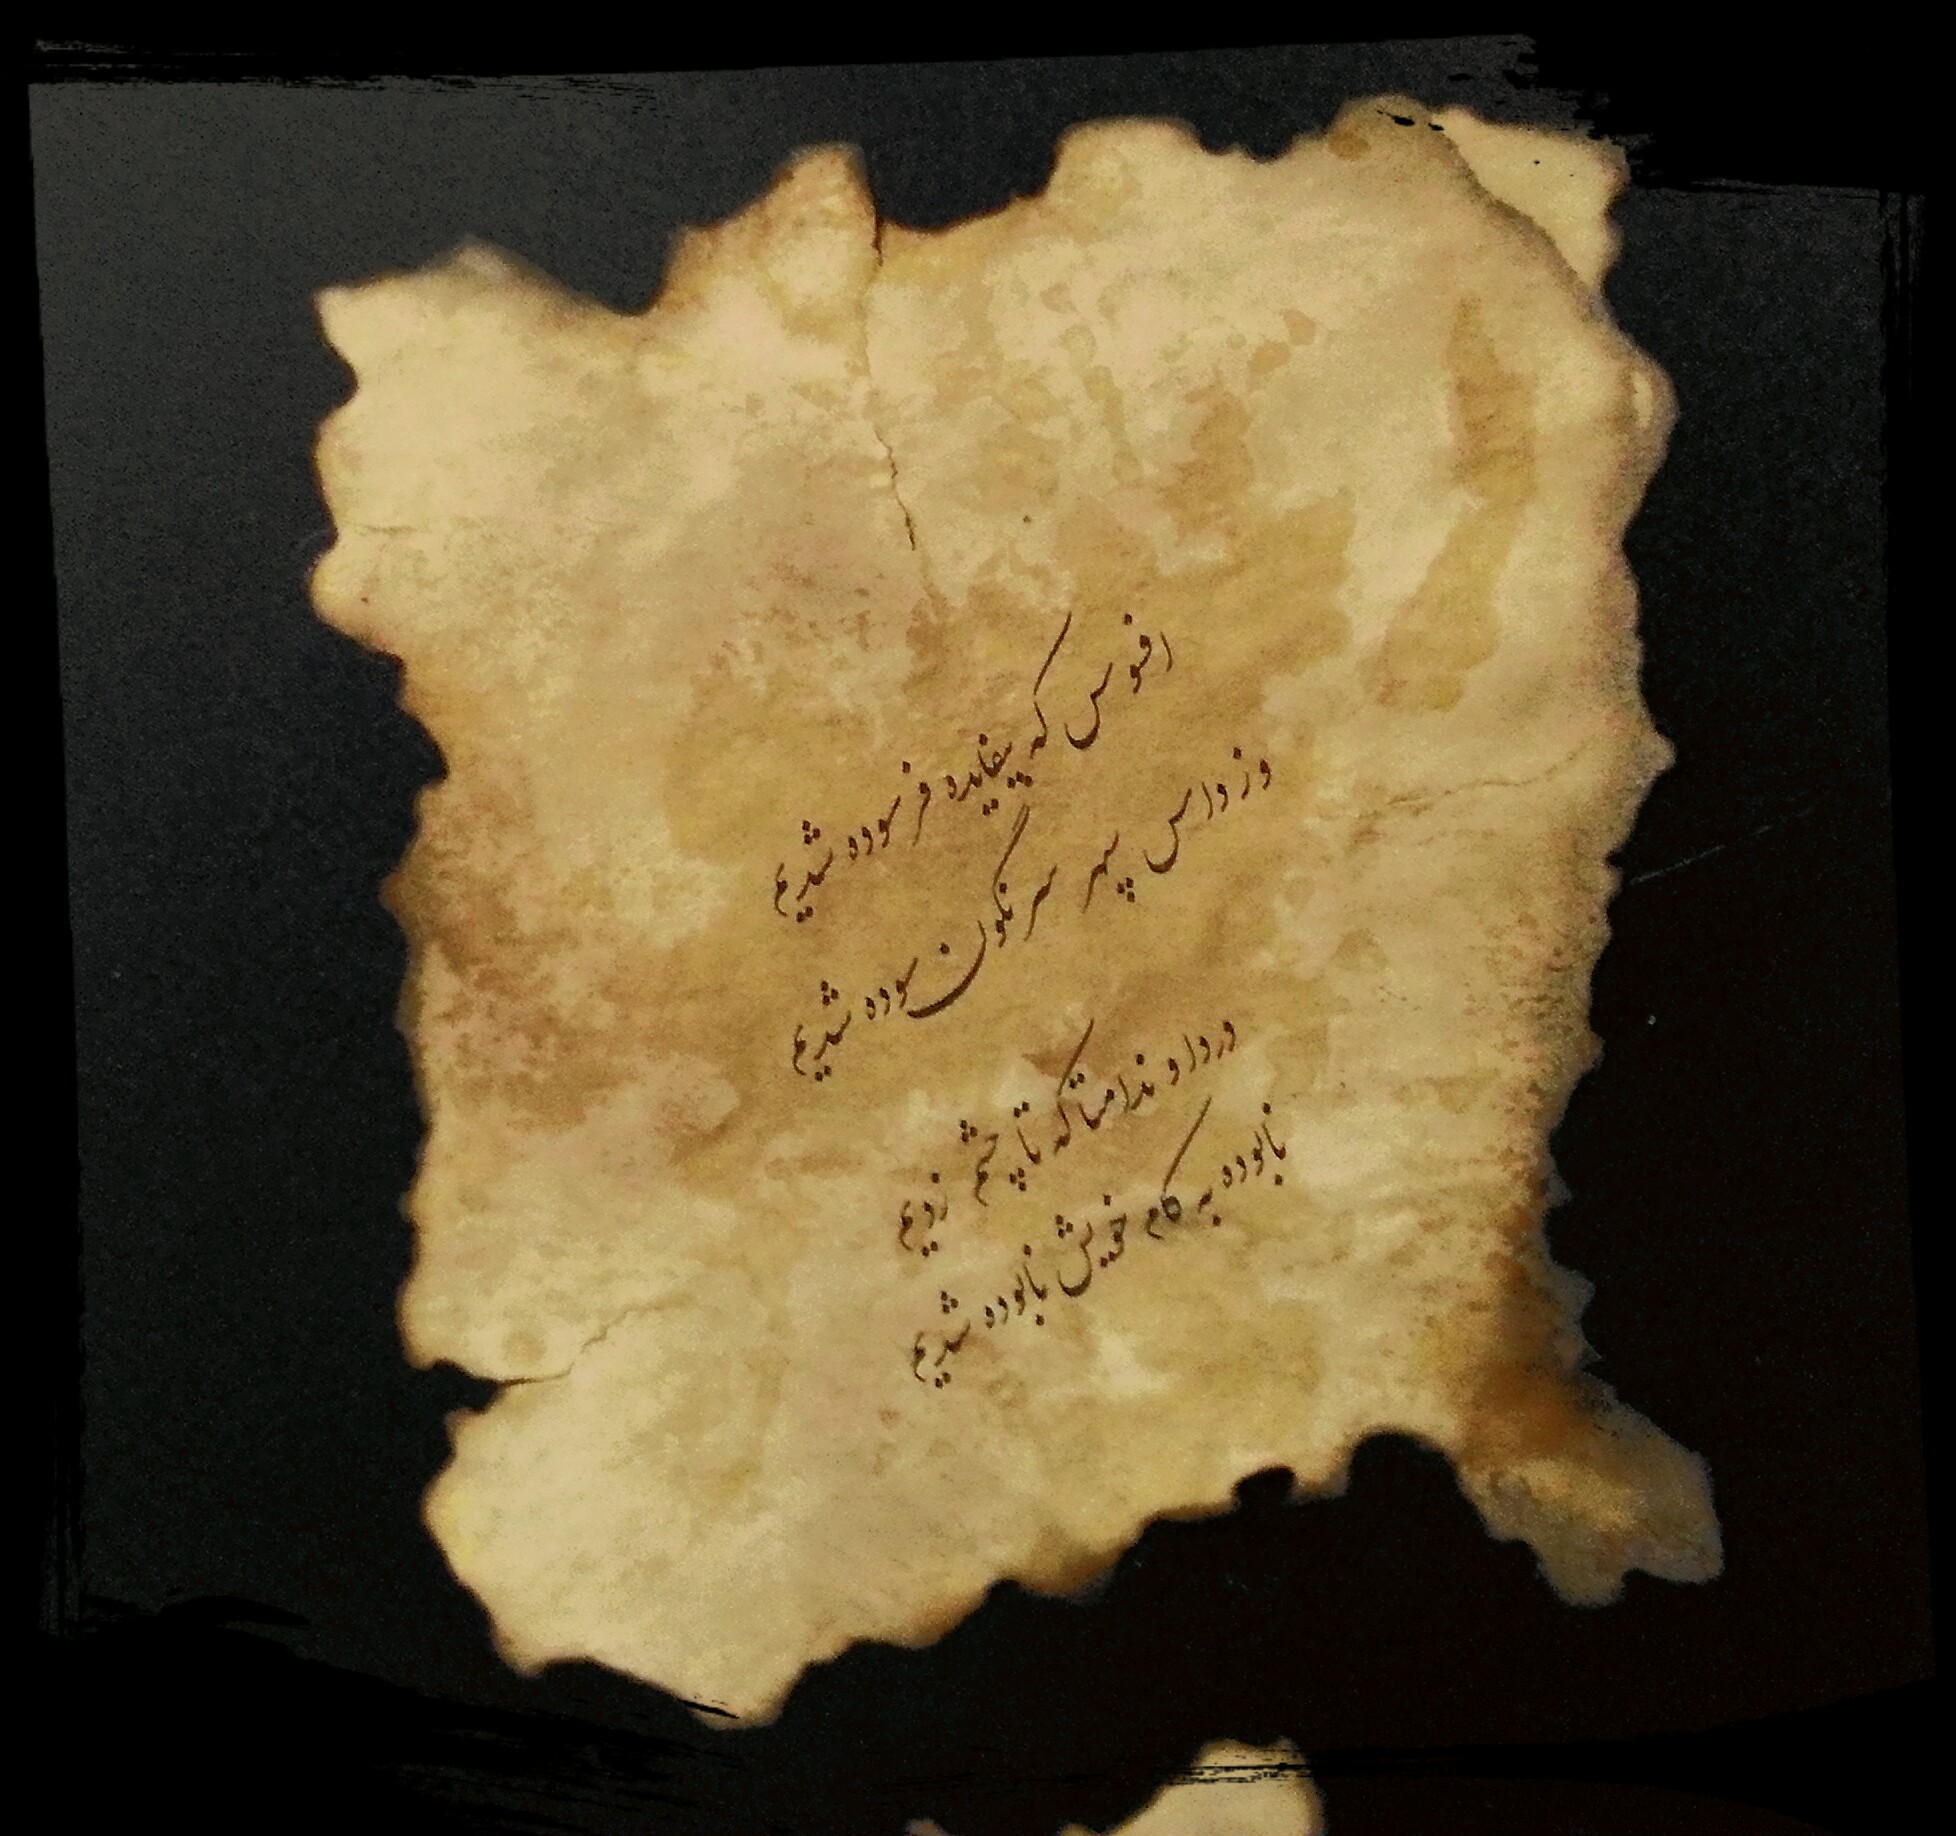 افسوس که بیفایده فرسوده شدیم
وز داس سپهر سرنگون سوده شدیم
دردا و ندامتا که تا چشم زدیم
نابوده به کام خویش نابوده شدیم